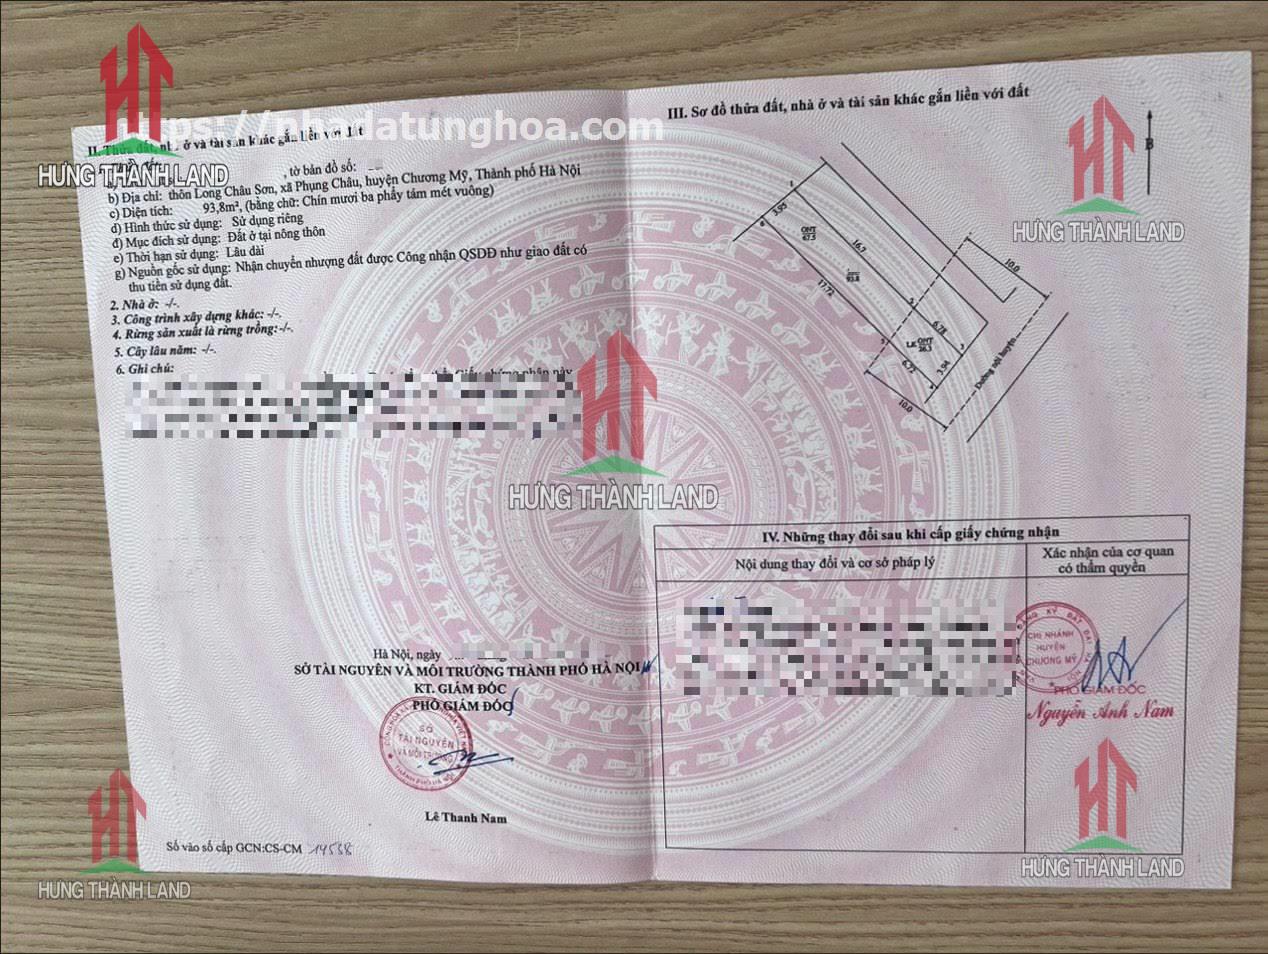 https://nhadatunghoa.com
II. Thửa đất, nhà ở và tài sản khác gắn liền với đất
, tờ bản đồ số:
b) Địa chỉ: thôn Long Châu Sơn, xã Phụng Châu, huyện Chương Mỹ, Thành phố Hà Nội
c) Diện tích: 93,8m², (bằng chữ: Chín mươi ba phẩy tám mét vuông)
d) Hình thức sử dụng: Sử dụng riêng
đ) Mục đích sử dụng: Đất ở tại nông thôn
e) Thời hạn sử dụng: Lâu dài
g) Nguồn gốc sử dụng: Nhận chuyển nhượng đất được Công nhận QSDĐ như giao đất có
thu tiền sử dụng đất.
2. Nhà ở: -/-.
3. Công trình xây dựng khác: -/-.
4. Rừng sản xuất là rừng trồng:-/-.
5. Cây lâu năm: -/-.
6. Ghi chú:
Giấy chứng nhận này
Hà Nội, ngày
SỞ TÀI NGUYÊN VÀ MÔI TRƯỜNG THÀNH PHỐ HÀ NỘI
KT. GIÁM ĐỐC
PHÓ GIÁM ĐỐC
SỞ
TÀI NGUYÊN
VÀ MÔI TRƯỜNG
THÀNH PHỐ HÀ NỘI
Lê Thanh Nam
Số vào sổ cấp GCN:CS-CM 14538
III. Sơ đồ thửa đất, nhà ở và tài sản khác gắn liền với đất
B
1
3.95
4
ONT
67.5
16.7
93.8
17.72
10.0
2
6.78
5
LK ONT
26.3
3
6.72
3.94
10.0
Đường nội huyện
IV. Những thay đổi sau khi cấp giấy chứng nhận
Nội dung thay đổi và cơ sở pháp lý
Xác nhận của cơ quan
có thẩm quyền
CHI NHÁNH
HUYỆN
CHƯƠNG MỸ
PHÓ GIÁM ĐỐC
Nguyễn Anh Nam
HƯNG THÀNH LAND
HƯNG THÀNH LAND
HƯNG THÀNH LAND
HƯNG THÀNH LAND
HƯNG THÀNH LAND